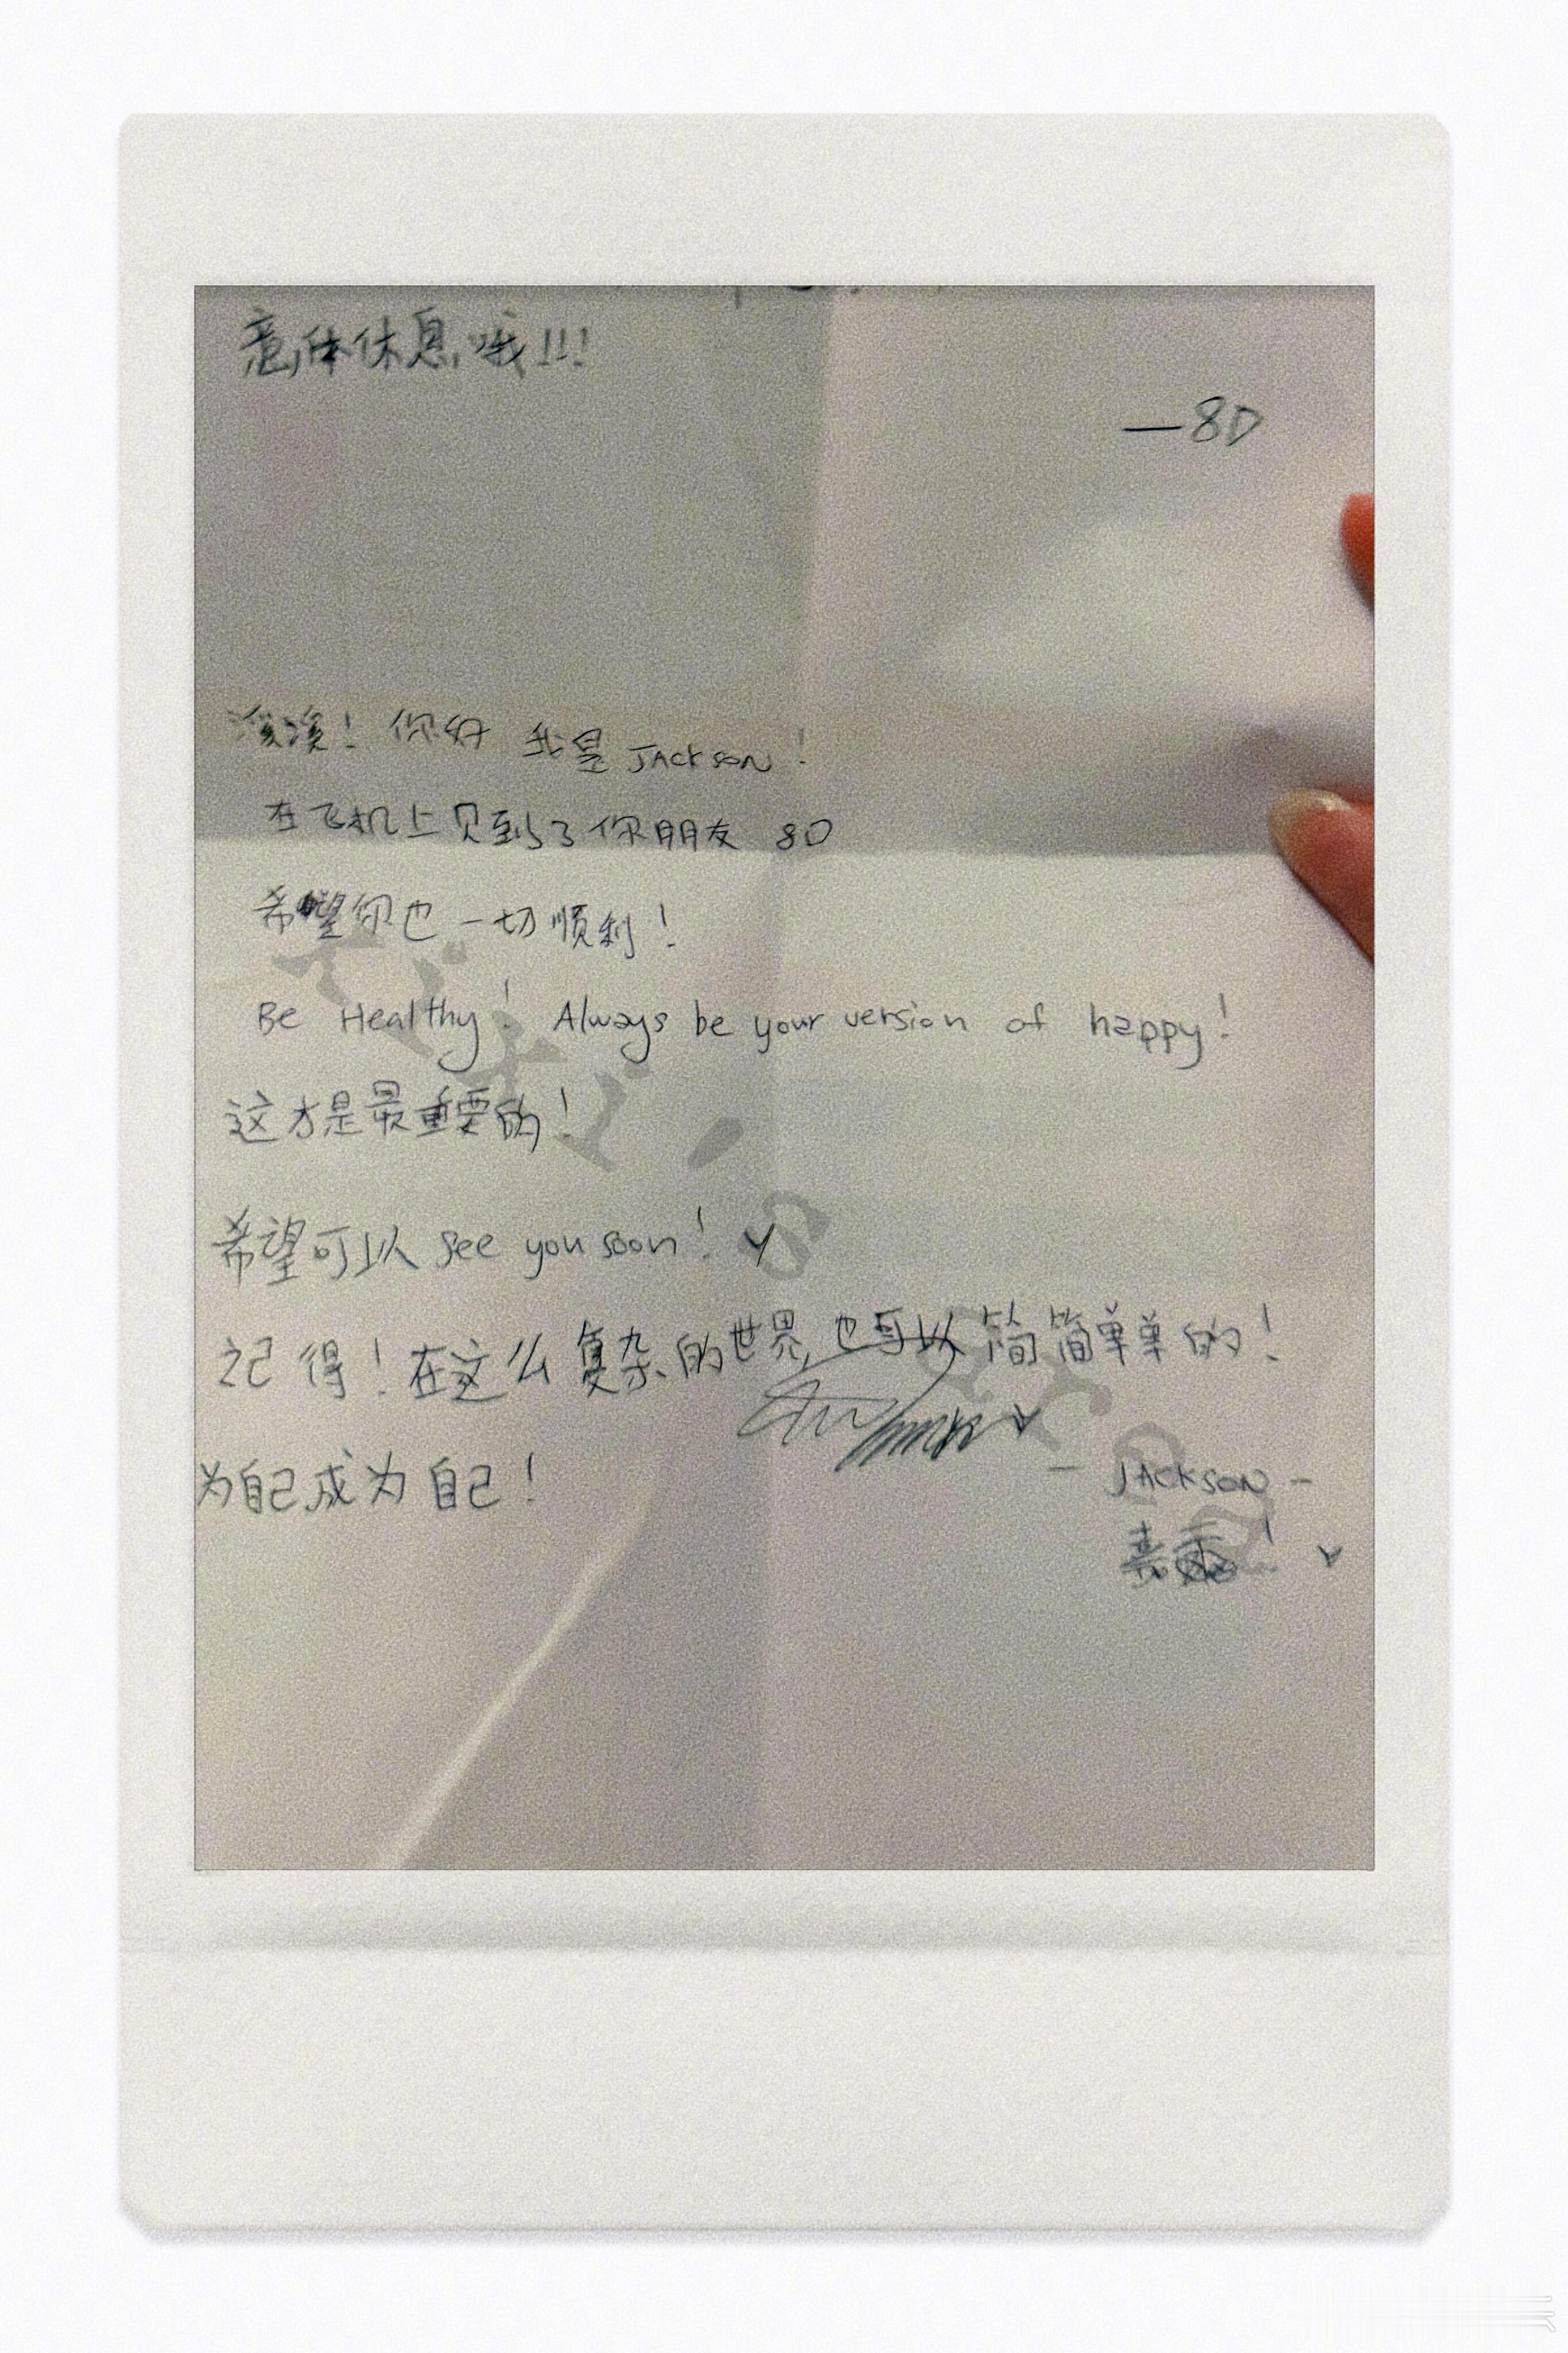 意休休息哦!!!
—8D
溪溪! 你好 我是 JACKSON!
在飞机上见到了你朋友 8D
希望你也一切顺利!
Be Healthy! Always be your version of happy!
这才是最重要的!
希望可以 see you soon!
记得! 在这么复杂的世界, 也可以简简单单的!
为自己成为自己!
- JACKSON -
嘉!